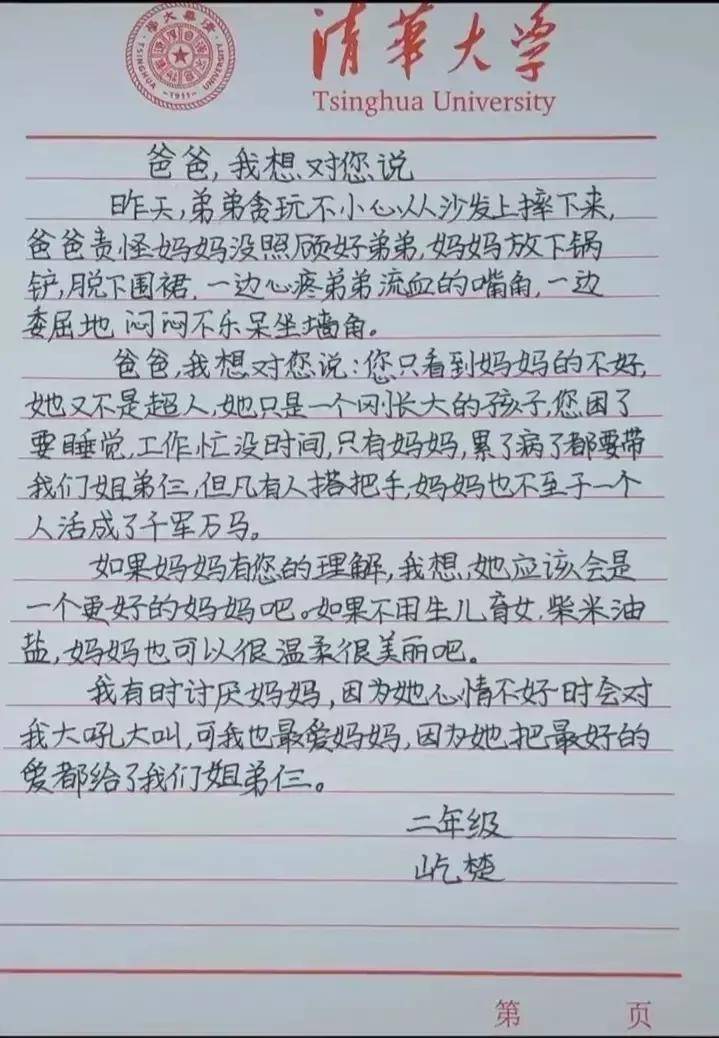 清華大学
Tsinghua University
TSINGHUA UNIVERSITY
-1911-
爸爸,我想对您说
昨天,弟弟贪玩不小心从沙发上摔下来,
爸爸责怪妈妈没照顾好弟弟,妈妈放下锅
铲,脱下围裙,一边心疼弟弟流血的嘴角,一边
委屈地闷闷不乐呆坐墙角。
爸爸,我想对您说:您只看到妈妈的不好,
她又不是超人,她只是一个刚长大的孩子,您困了
要睡觉,工作忙没时间,只有妈妈,累了病了都要带
我们姐弟仨,但凡有人搭把手,妈妈也不至于一个
人活成了千军万马。
如果妈妈有您的理解,我想,她应该会是
一个更好的妈妈吧。如果不用生儿育女,柴米油
盐,妈妈也可以很温柔很美丽吧。
我有时讨厌妈妈,因为她心情不好时会对
我大吼大叫,可我也最爱妈妈,因为她把最好的
爱都给了我们姐弟仨。
二年级
屹楚
第 页